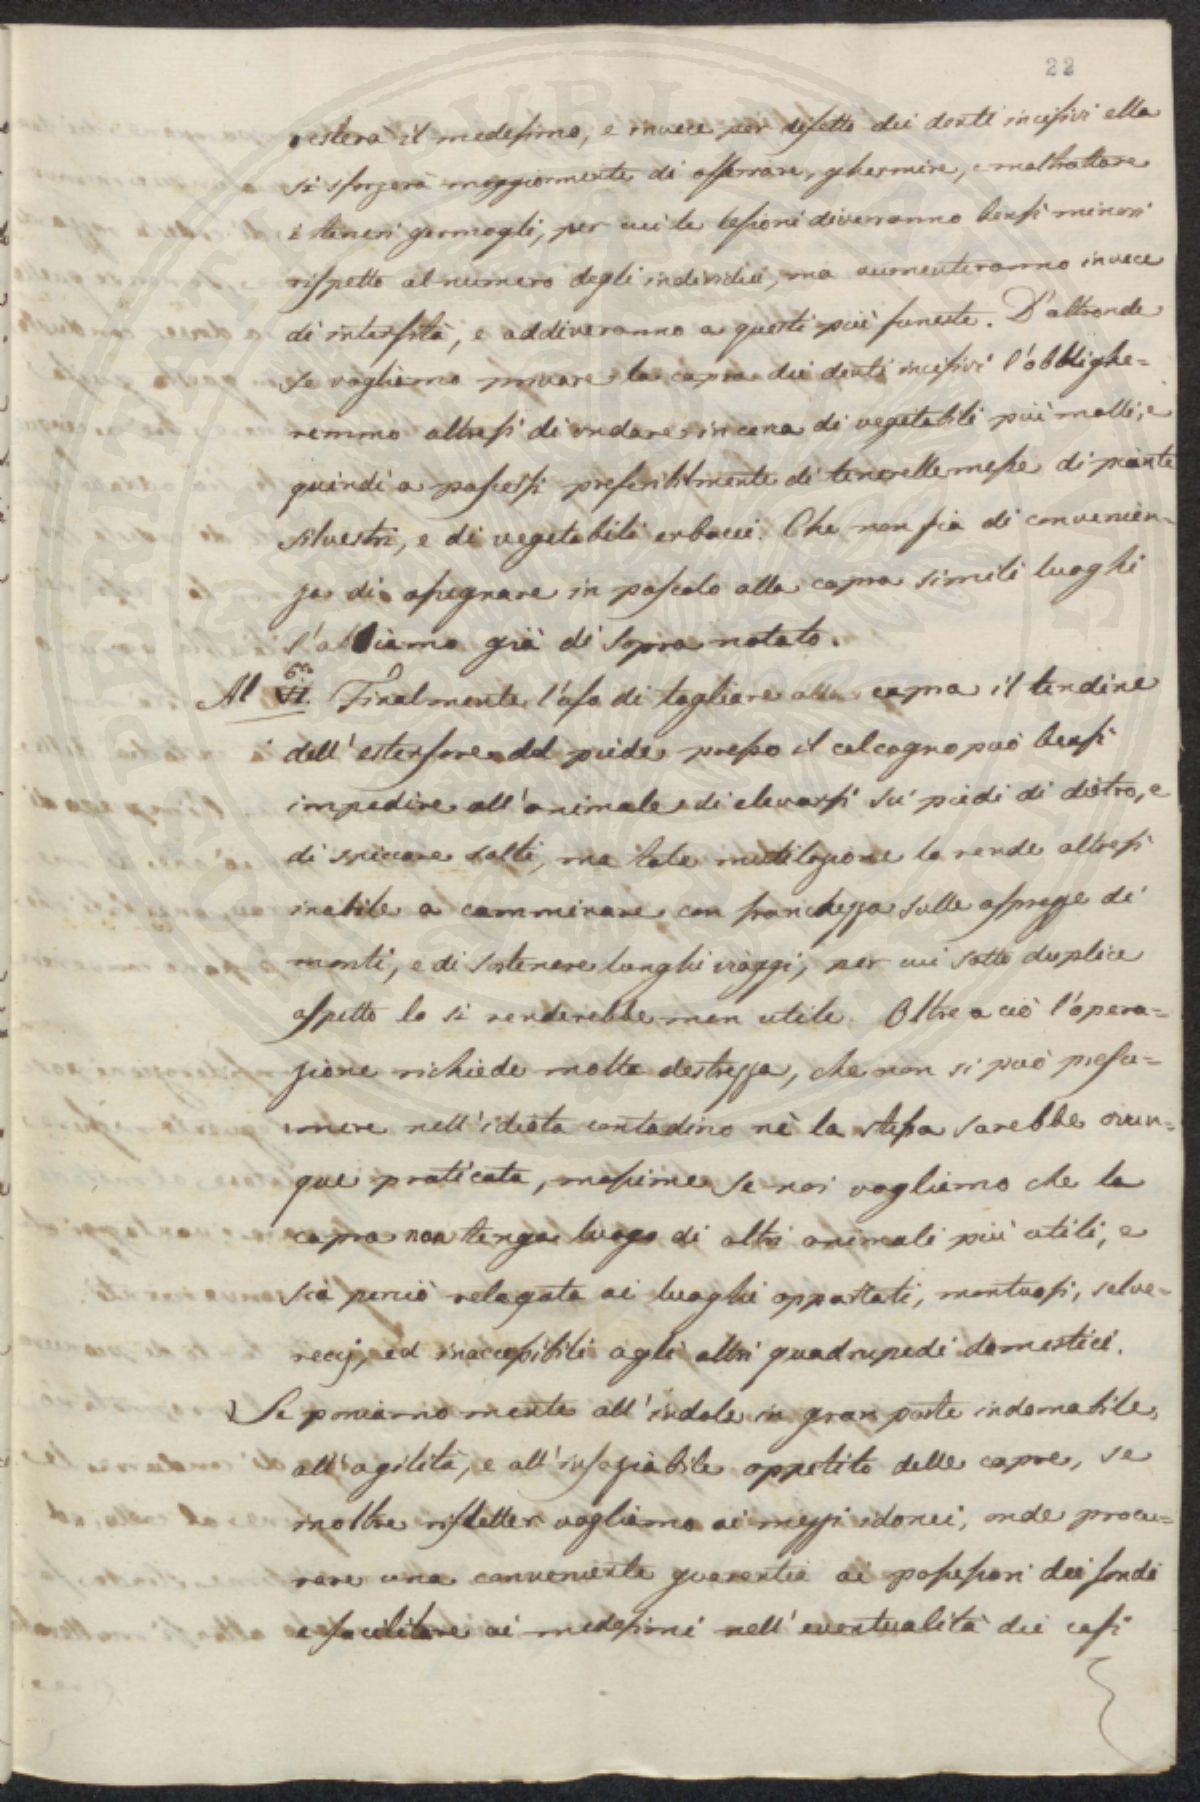 22
resterà il medesimo, e invece per difetto dei denti incisivi ella
si sforzerà maggiormente di afferrare, ghermire, e maltrattare
i teneri germogli, per cui le lesioni diverranno bensì minori
rispetto al numero degli individui, ma aumenteranno invece
di intensità, e addiverranno a questi più funeste. D'altronde
se vogliamo privare la capra dei denti incisivi l'obblighe=
remmo altresì di andare in cerca di vegetabili più molli, e
quindi a pascersi preferibilmente di tenerelle messe di piante
silvestri, e di vegetabili erbacei. Che non sia di convenien=
za di assegnare in pascolo alla capra simili luoghi
l'abbiamo già di sopra notato.
Al 6to VI. Finalmente l'uso di tagliare alla capra il tendine
dell'estensore del piede presso il calcagno può bensì
impedire all'animale di elevarsi sui piedi di dietro, e
di spiccare salti, ma tale mutilazione la rende altresì
inabile a camminare con franchezza sulle asprezze di
monti, e di sostenere lunghi viaggi, per cui sotto duplice
aspetto la si renderebbe men utile. Oltre a ciò l'opera=
zione richiede molta destrezza, che non si può presu=
mere nell'idiota contadino nè la stessa sarebbe ovun=
que praticata, massime se noi vogliamo che la
capra non tenga luogo di altri animali più utili, e
sia perciò relegata ai luoghi appartati, montuosi, selve=
recij, ed inaccessibili agli altri quadrupedi domestici.
Se poniamo mente all'indole in gran parte indomabile,
all'agilità, e all'insaziabile appetito delle capre, se
inoltre rifletter vogliamo ai mezzi idonei, onde procu=
rare una conveniente guarentia ai possessori dei fondi
e facilitare ai medesimi nell'eventualità dei casi